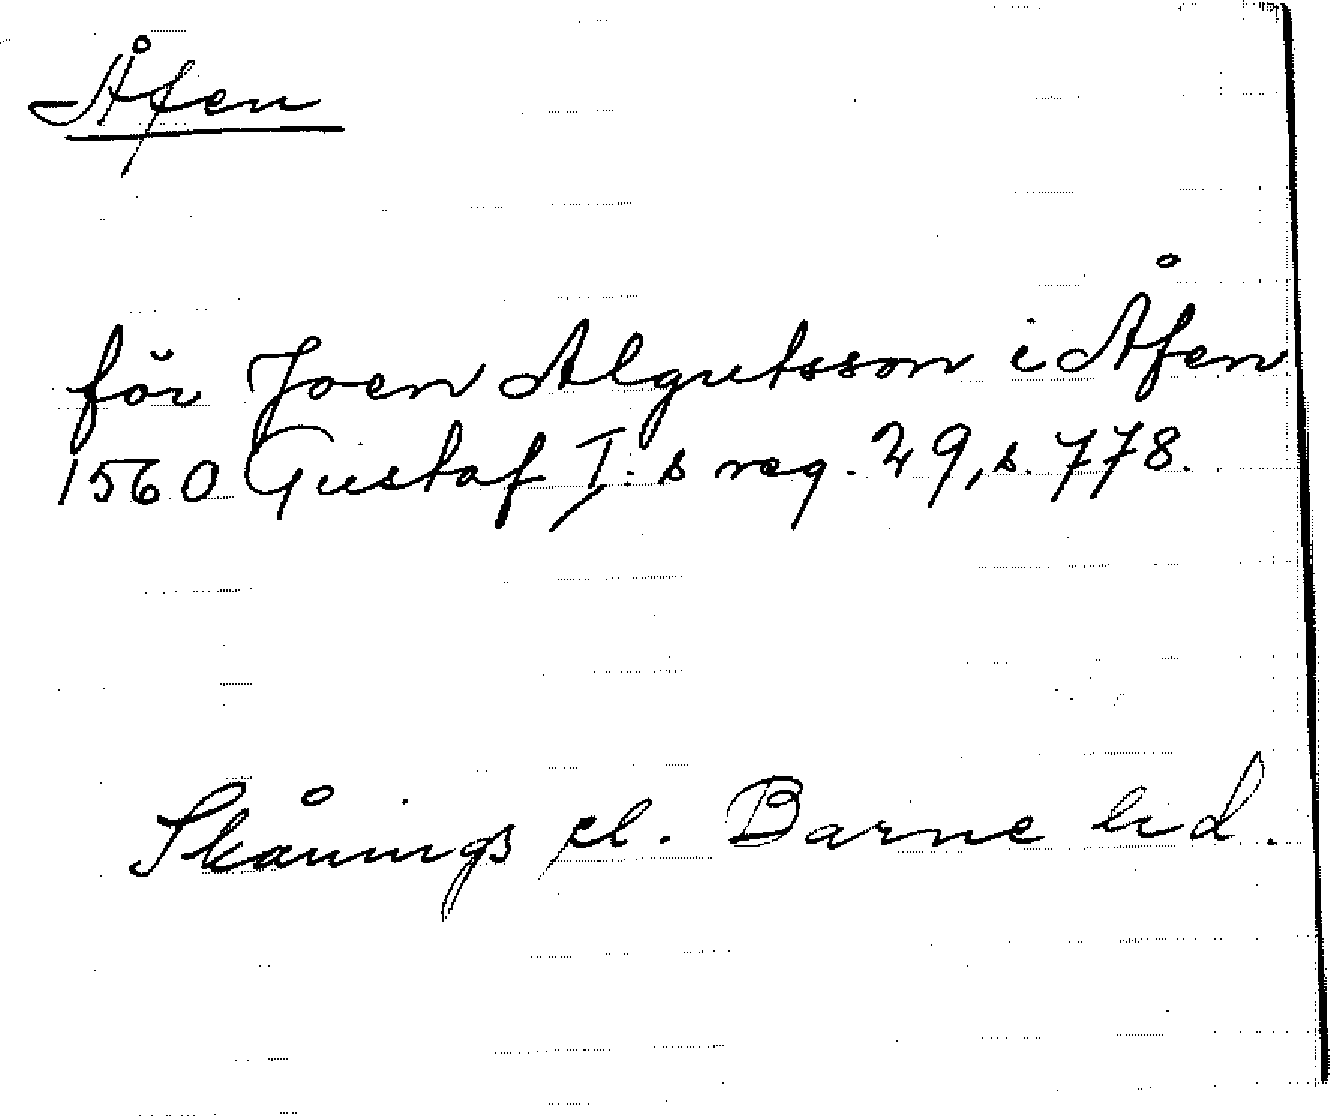 Åfen
för Joen Algutsson i Åfen
1560 Gustaf I:s reg. 29, s. 778.
Skånings el. Barne hd.